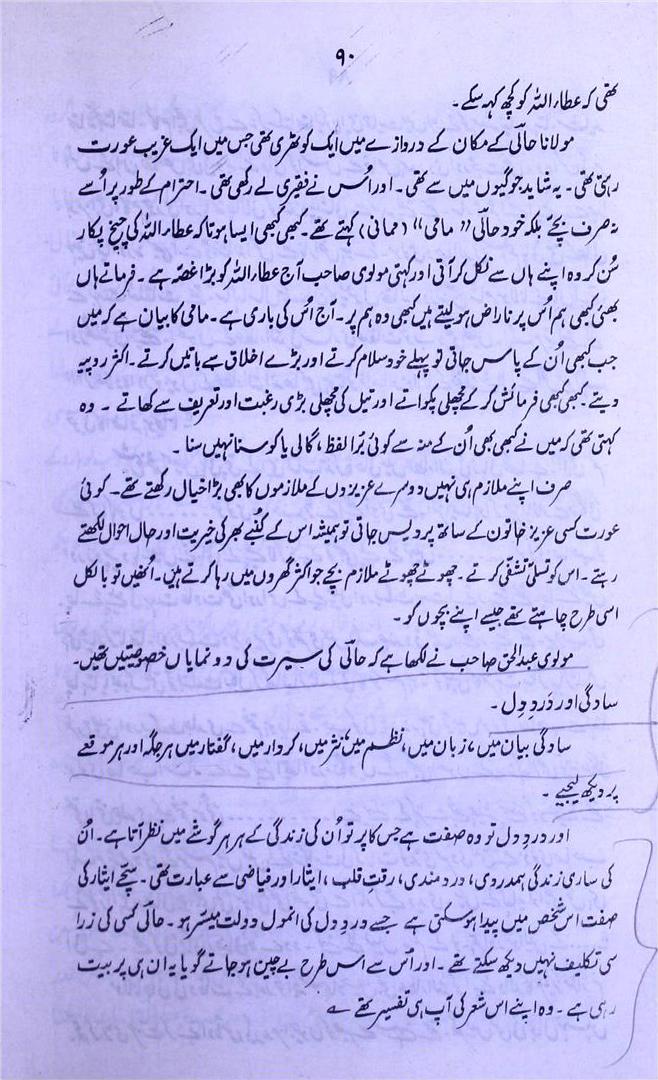 ۹۰
تھی کہ عطاء اللہ کو کچھ کہہ سکے۔
مولانا حالؔی کے مکان کے دروازے میں ایک کوٹھری تھی جس میں ایک غریب عورت
رہتی تھی۔ یہ شاید جوگیوں میں سے تھی۔ اور اُس نے فقیری لے رکھی تھی۔ احترام کے طور پر اُسے
نہ صرف بچے بلکہ خود حالؔی ”مامی“ (ممانی) کہتے تھے۔ کبھی کبھی ایسا ہوتا کہ عطاء اللہ کی چیخ پکار
سُن کر وہ اپنے ہاں سے نکل کر آتی اور کہتی مولوی صاحب آج عطاء اللہ کو بڑا غصّہ ہے۔ فرماتے ہاں
بھئی کبھی ہم اُس پر ناراض ہو لیتے ہیں کبھی وہ ہم پر۔ آج اُس کی باری ہے۔ مامی کا بیان ہے کہ میں
جب کبھی اُن کے پاس جاتی تو پہلے خود سلام کرتے اور بڑے اخلاق سے باتیں کرتے۔ اکثر روپیہ
دیتے۔ کبھی کبھی فرمائش کر کے مچھلی پکواتے اور تیل کی مچھلی بڑی رغبت اور تعریف سے کھاتے ۔ وہ
کہتی تھی کہ میں نے کبھی بھی اُن کے منہ سے کوئی بُرا لفظ، گالی یا کوسنا نہیں سنا ۔
صرف اپنے ملازم ہی نہیں دوسرے عزیزوں کے ملازموں کا بھی بڑا خیال رکھتے تھے۔ کوئی
عورت کسی عزیز خاتون کے ساتھ پردیس جاتی تو ہمیشہ اس کے کُنبے بھر کی خیریت اور حال احوال لکھتے
رہتے ۔ اس کو تسلی تشفّی کرتے ۔ چھوٹے چھوٹے ملازم بچے جو اکثر گھروں میں رہا کرتے ہیں۔ اُنھیں تو بالکل
اسی طرح چاہتے تھے جیسے اپنے بچوں کو ۔
مولوی عبدالحق صاحب نے لکھا ہے کہ حالؔی کی سیرت کی دو نمایاں خصوصیتیں تھیں۔
سادگی اور دَردِ دِل ۔
سادگی بیان میں، زبان میں، نظم میں نثر میں، کردار میں، گفتار میں ہر جگہ اور ہر موقعے
پر دیکھ لیجیے ۔
اور دردِ دل تو وہ صفت ہے جس کا پرتَو اُن کی زندگی کے ہر ہر گوشے میں نظر آتا ہے۔ اُن
کی ساری زندگی ہمدردی، دردمندی، رقتِ قلب، ایثار اور فیاضی سے عبارت تھی۔ سچّے ایثار کی
صفت اس شخص میں پیدا ہو سکتی ہے جسے دردِ دل کی انمول دولت میسّر ہو۔ حالؔی کسی کی زرا
سی تکلیف نہیں دیکھ سکتے تھے ۔ اور اُس سے اس طرح بے چین ہو جاتے گویا یہ ان ہی پر بیت
رہی ہے ۔ وہ اپنے اس شعر کی آپ ہی تفسیر تھے ؎